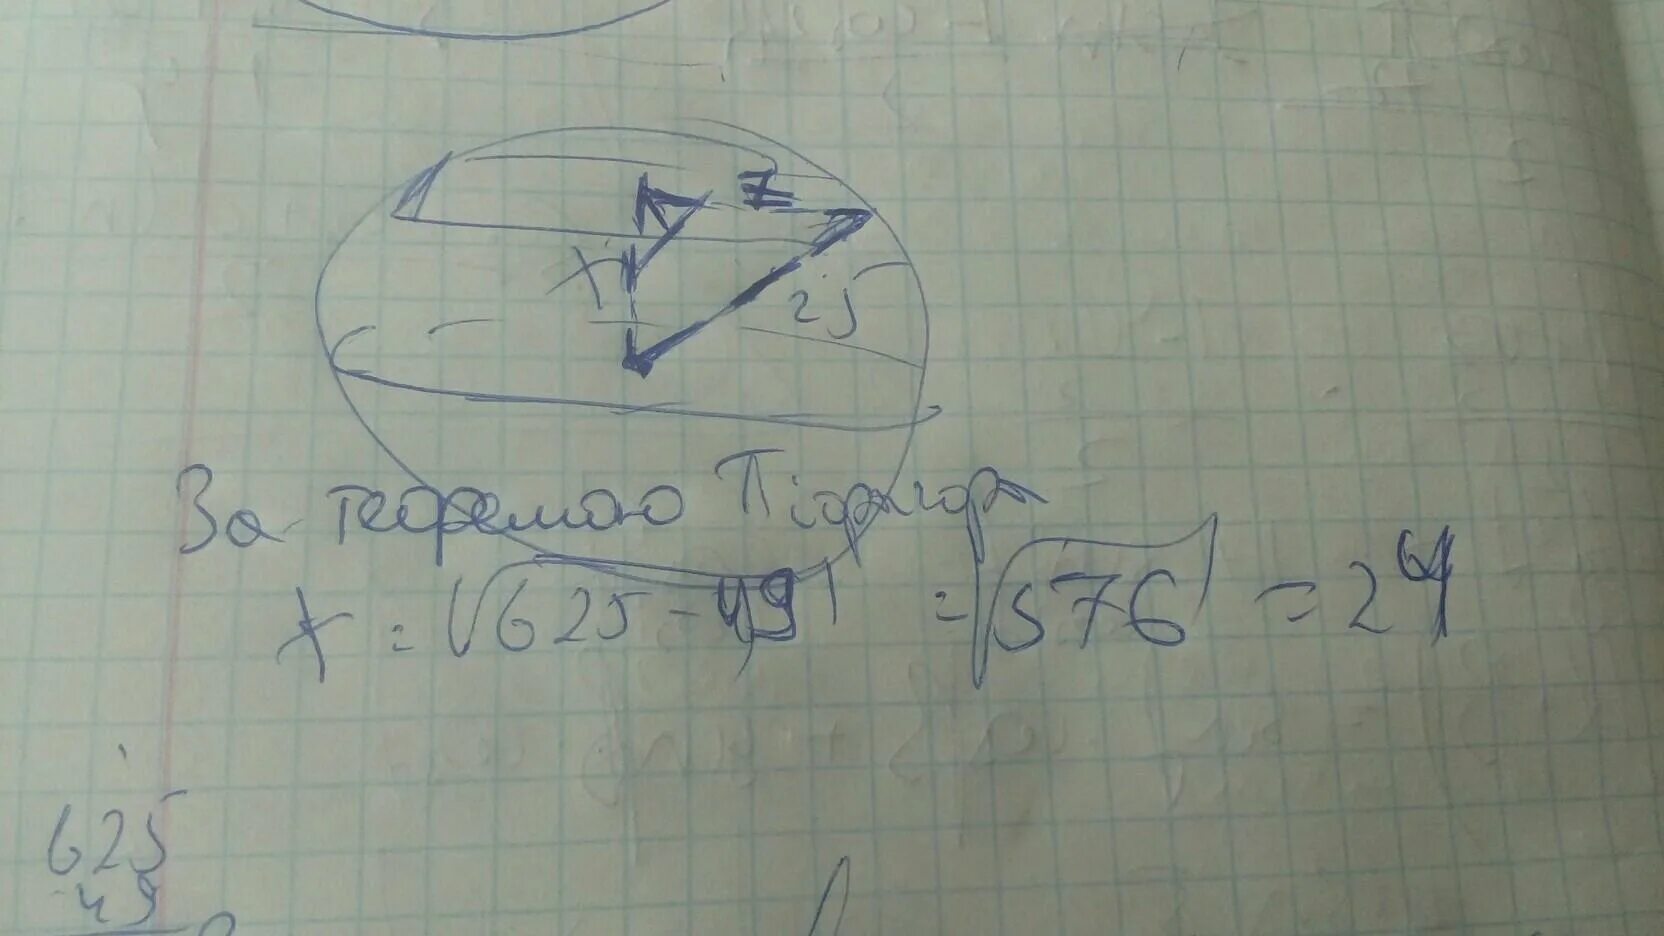 7
X
25
За теоремою Піфагора
x = √625-49 = √576 = 24
625
49